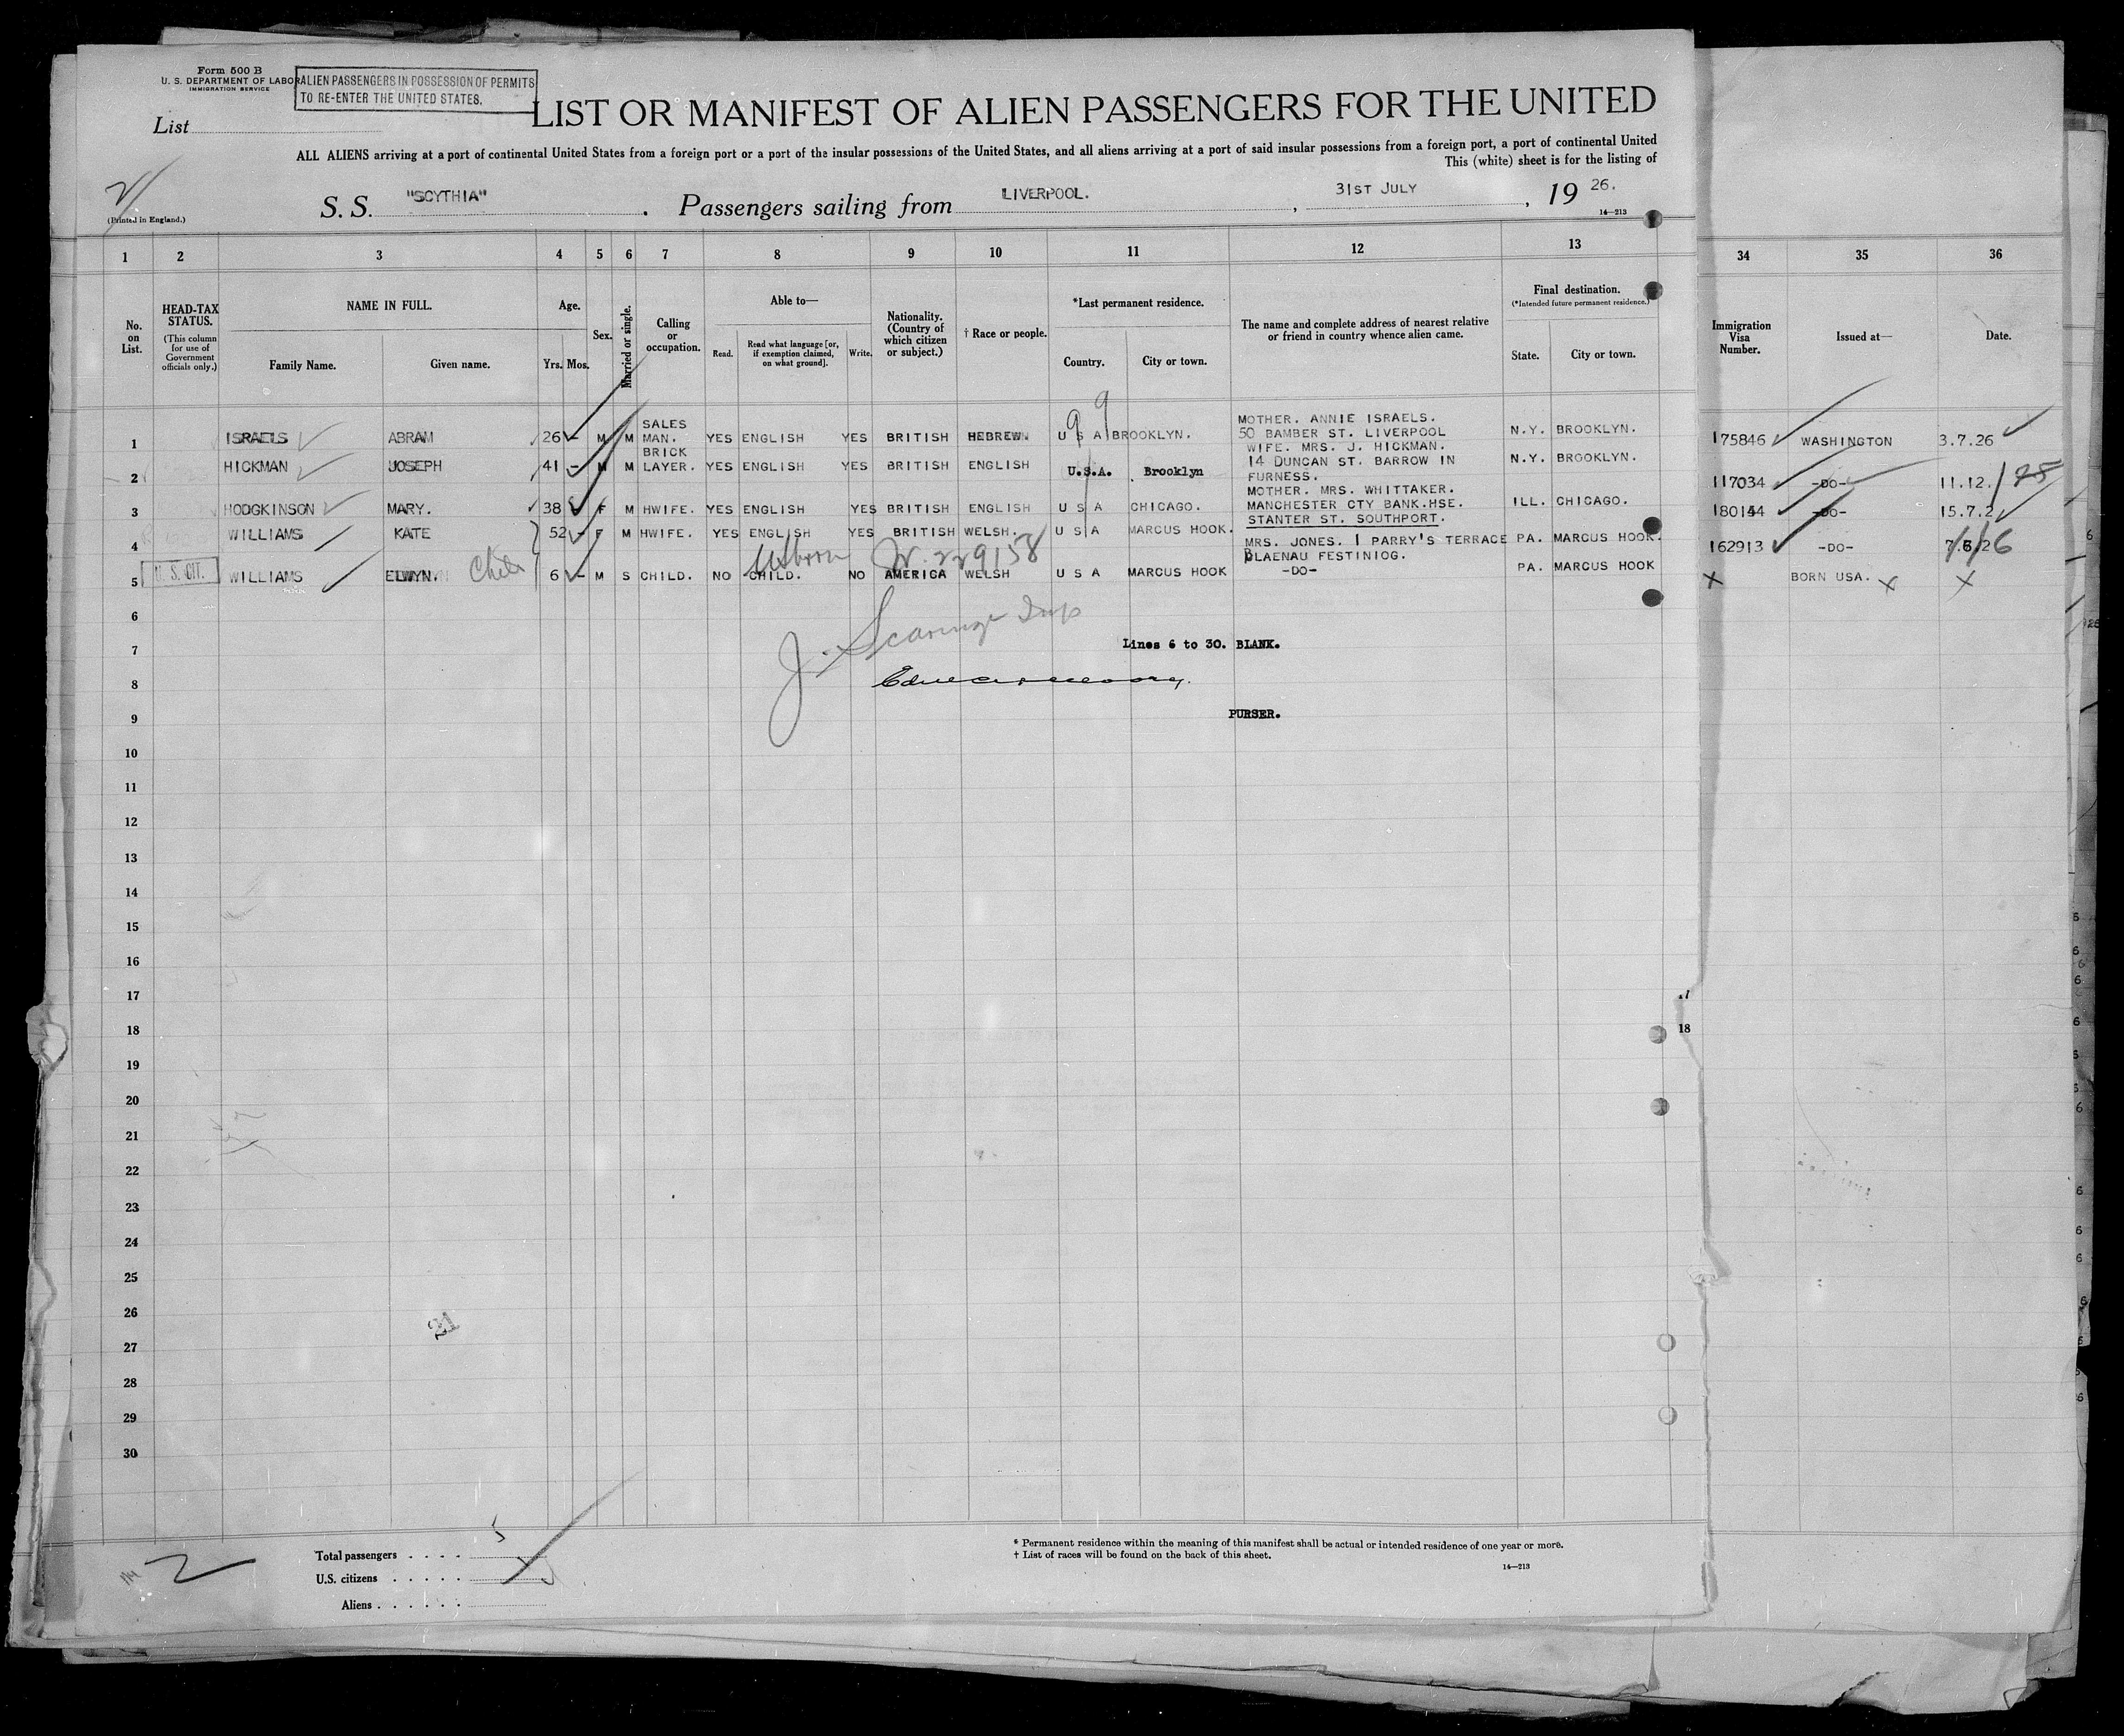 Form 500 B
U. S. DEPARTMENT OF LABOR
IMMIGRATION SERVICE
ALIEN PASSENGERS IN POSSESSION OF PERMITS
TO RE-ENTER THE UNITED STATES.
List
LIST OR MANIFEST OF ALIEN PASSENGERS FOR THE UNITED
ALL ALIENS arriving at a port of continental United States from a foreign port or a port of the insular possessions of the United States, and all aliens arriving at a port of said insular possessions from a foreign port, a port of continental United
This (white) sheet is for the listing of
(Printed in England.)
S. S. "SCYTHIA". Passengers sailing from LIVERPOOL., 31ST JULY, 19 26.
14—213
1 2 3 4 5 6 7 8 9 10 11 12 13 34 35 36
No. on List.
HEAD-TAX STATUS.
(This column for use of Government officials only.)
NAME IN FULL.
Family Name. Given name.
Age.
Yrs. Mos.
Sex.
Married or single.
Calling or occupation.
Able to—
Read. Read what language [or, if exemption claimed, on what ground]. Write.
Nationality. (Country of which citizen or subject.)
† Race or people.
*Last permanent residence.
Country. City or town.
The name and complete address of nearest relative or friend in country whence alien came.
Final destination.
(*Intended future permanent residence.)
State. City or town.
Immigration Visa Number.
Issued at—
Date.
1 ISRAELS ABRAM 26 - M M SALES MAN. YES ENGLISH YES BRITISH HEBREW. U S A BROOKLYN. MOTHER. ANNIE ISRAELS. 50 BAMBER ST. LIVERPOOL N.Y. BROOKLYN. 175846 WASHINGTON 3.7.26
2 HICKMAN JOSEPH 41 - M M BRICK LAYER. YES ENGLISH YES BRITISH ENGLISH U.S.A. Brooklyn WIFE. MRS. J. HICKMAN. 14 DUNCAN ST. BARROW IN FURNESS. N.Y. BROOKLYN. 117034 -DO- 11.12./25
3 HODGKINSON MARY. 38 F M HWIFE. YES ENGLISH YES BRITISH ENGLISH U S A CHICAGO. MOTHER. MRS. WHITTAKER. MANCHESTER CTY BANK.HSE. STANTER ST. SOUTHPORT. ILL. CHICAGO. 180144 -DO- 15.7.2
4 WILLIAMS KATE 52 - F M HWIFE. YES ENGLISH YES BRITISH WELSH. U S A MARCUS HOOK. MRS. JONES. 1 PARRY'S TERRACE BLAENAU FESTINIOG. PA. MARCUS HOOK. 162913 -DO-
5 U. S. CIT. WILLIAMS ELWYN. 6 - M S CHILD. NO CHILD. NO AMERICA WELSH U S A MARCUS HOOK -DO- PA. MARCUS HOOK X BORN USA. X X
6
7
Lines 6 to 30. BLANK.
8
9
PURSER.
10
11
12
13
14
15
16
17
18
18
19
20
21
22
23
24
25
26
27
28
29
30
Total passengers . . . . 5
U.S. citizens . . . . .
Aliens . . . . . .
2
* Permanent residence within the meaning of this manifest shall be actual or intended residence of one year or more.
† List of races will be found on the back of this sheet.
14—213